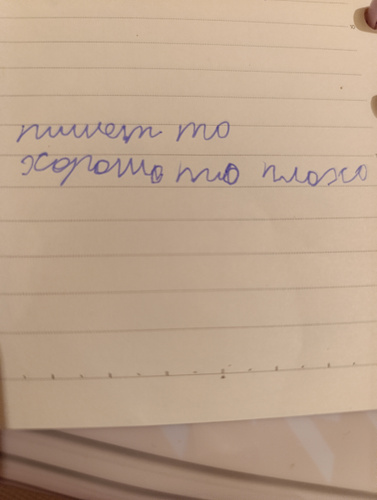 пишет то
хорошо то плохо